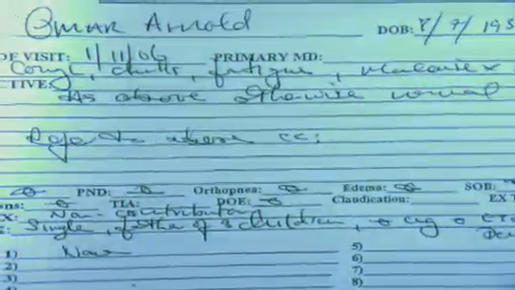 Omar Arnold DOB: 8/7/195
OF VISIT: 1/11/06 PRIMARY MD:
Cough, chills, fatigue, malaise x
TIVE:
As above otherwise normal
Refer to above cc:
PND: Orthopnea: Edema: SOB:
ns: TIA: DOE: Claudication: EX T
X: Non-contributory
E: Single, father of 3 children, cig
1) None 5)
2) 6)
3) 7)
8)